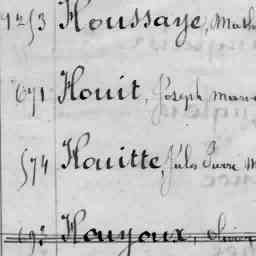 1253 Houssaye, Math
671 Houit, Joseph Marie
574 Houitte, Jules Pierre M
Houyoux, Olivier